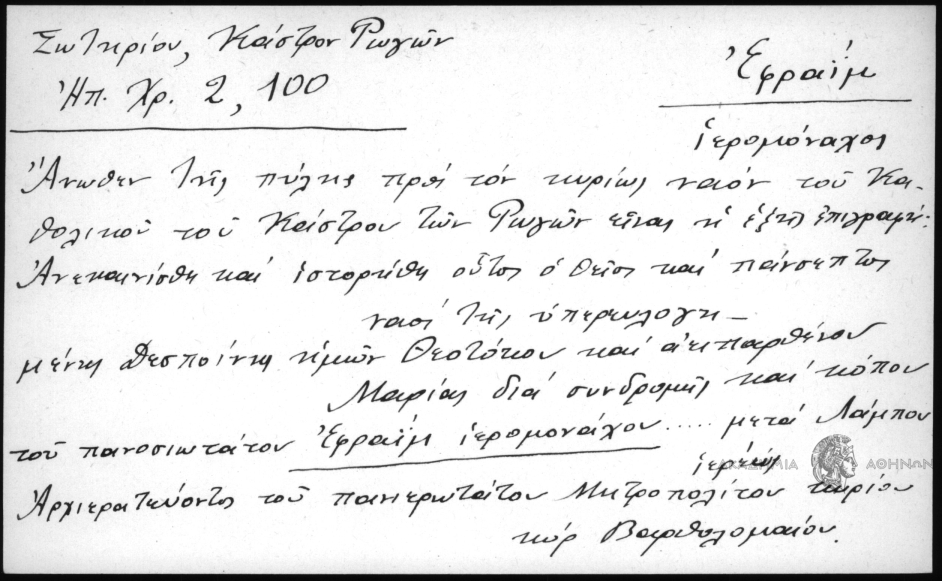 Σωτηρίου, Κάστρον Ρωγῶν
Ἠπ. Χρ. 2, 100
Ἐφραίμ
ἱερομόναχος
Ἄνωθεν τῆς πύλης πρὸς τὸν κυρίως ναὸν τοῦ Κα-
θολικοῦ τοῦ Κάστρου τῶν Ρωγῶν εἶναι ἡ ἑξῆς ἐπιγραφή:
Ἀνεκαινίσθη καὶ ἱστορήθη οὗτος ὁ θεῖος καὶ πάνσεπτος
ναὸς τῆς ὑπερευλογη-
μένης Δεσποίνης ἡμῶν Θεοτόκου καὶ ἀειπαρθένου
Μαρίας διὰ συνδρομῆς καὶ κόπου
τοῦ πανοσιωτάτου Ἐφραὶμ ἱερομονάχου ..... μετὰ Λάμπου
ἱερέως
ΑΚΑΔΗΜΙΑ ΑΘΗΝΩΝ
Ἀρχιερατεύοντος τοῦ πανιερωτάτου Μητροπολίτου κυρίου
κὺρ Βαρθολομαίου.